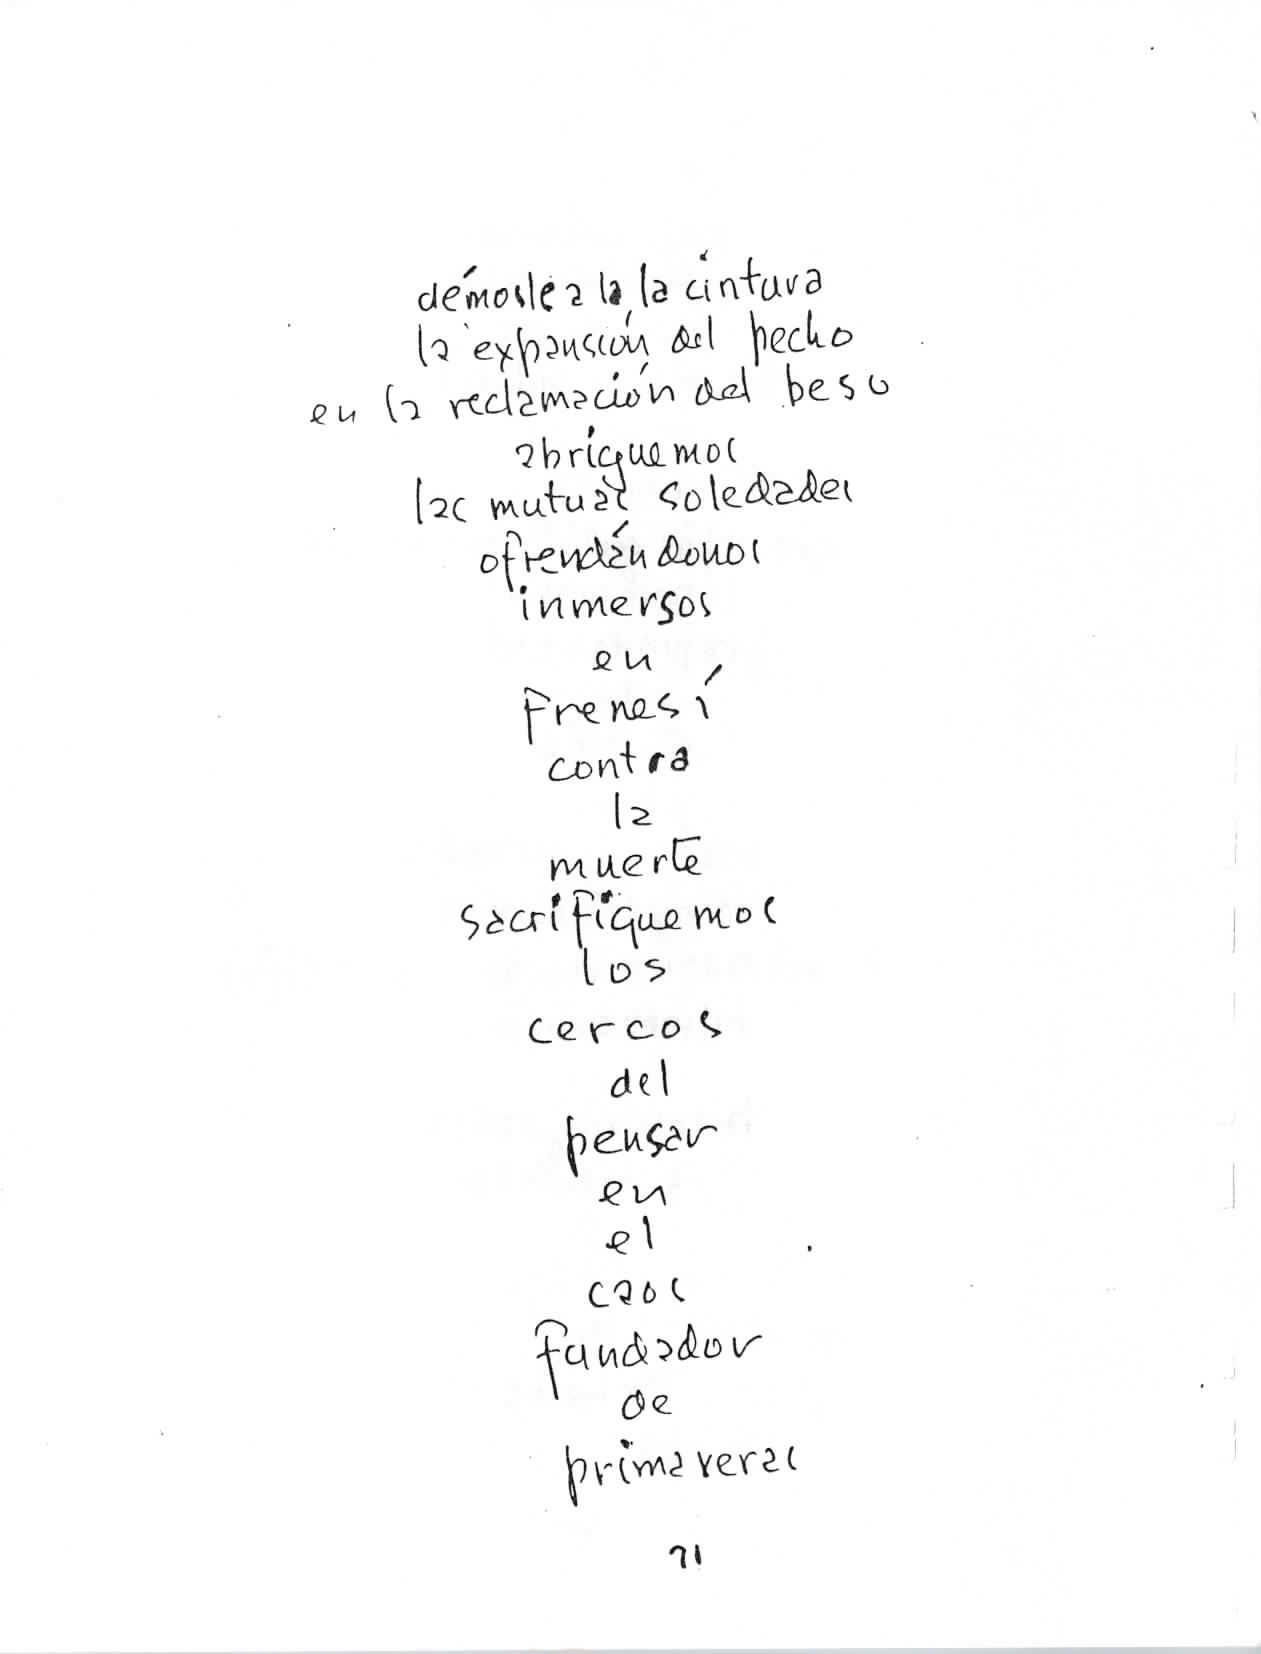 démosle a la la cintura
la expansión del pecho
en la reclamación del beso
abriguemos
las mutuas soledades
ofrendándonos
inmersos
en
frenesí
contra
la
muerte
sacrifiquemos
los
cercos
del
pensar
en
el
caos
fundador
de
primaveras
71